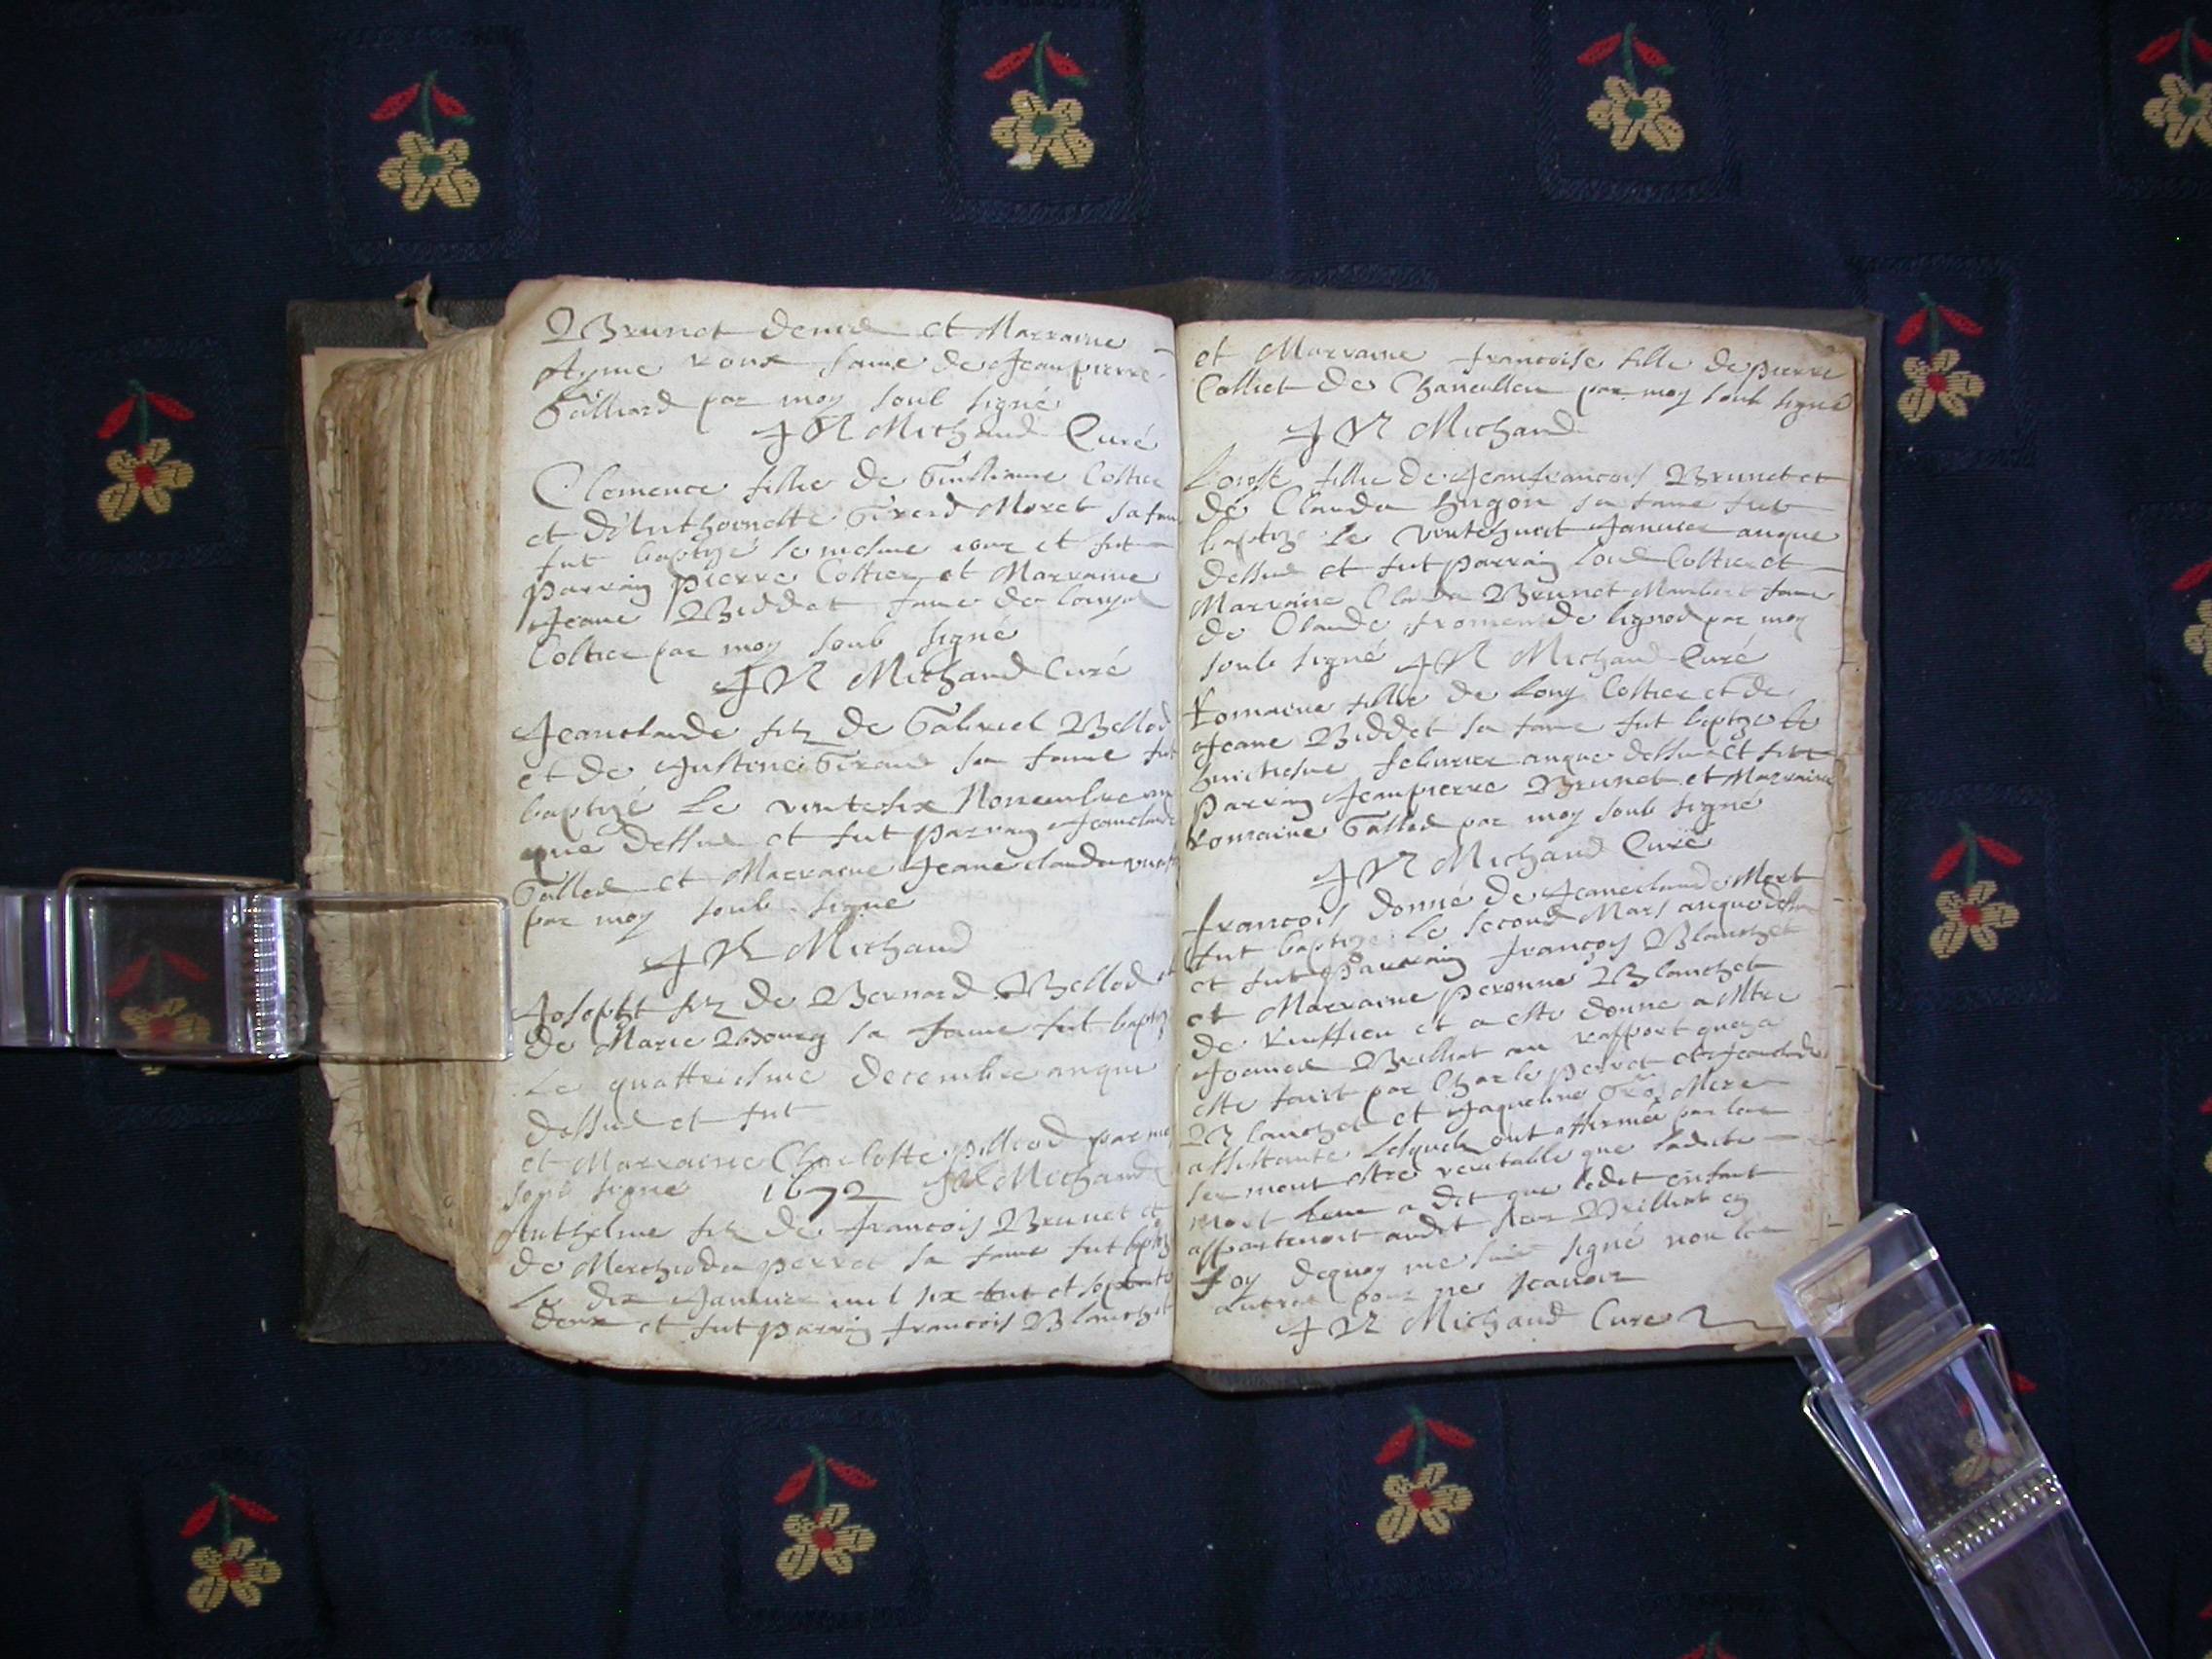 Brunet et Marraine
Ayme roux fame de Jeanpierre
Galliard par moy soub signé
JR Michaud Curé
Clemence fille de Guilliaume Coltier
et d'Anthoinette Girerd Moret sa fame
fut baptizé le mesme iour et fut
parrain pierre Coltier et Marraine
Jeane Biddet fame de Louys
Coltier par moy soub signé
JR Michaud Curé
Jeanclaude filz de Gabriel Bellod
et de Justine Giraud sa fame fut
baptizé le vintesix Novembre an
que dessus et fut parrain Jeanclaude
Gallod et Marraine Jeane clauda
par moy soub signé
JR Michaud
Josepht filz de Bernard Bellod et
de Marie Bourg sa fame fut baptizé
Le quattriesme decembre an que
dessus et fut
et Marraine Charlotte pilliod par moy
soub signé 1672 JR Michaud
Anthelme filz de francois Brunet et
de Merchioda perret sa fame fut baptizé
Le dix Januier mil six cent et septante
deux et fut parrain francois Blanchet
et Marraine francoise fille de pierre
Colliet de par moy soub signé
JR Michaud
fille de Jeanfrancois Brunet et
de Clauda hugon sa fame fut
baptizé le vintehuict Januier anque
dessus et fut parrain Coltier et
Marraine Clauda Brunet Mambert fame
de Claude fromen de lignod par moy
soub signé JR Michaud Curé
Romaine fille de Louy Coltier et de
Jeane Biddet sa fame fut baptizé le
huictiesme feburier anque dessus et fut
parrain Jeanpierre Brunet et Marraine
Romaine Gallod par moy soub signé
JR Michaud Curé
francois donné de Jeaneclauda Moret
fut baptizé le second Mars anque dessus
et fut parrain françoys Blanchet
et Marraine peronne Blanchet
de Ruffieu et a esté donné a Mtre
Brilliat au rapport quez a
esté faict par Charle perret et Jeanclaude
Blanchet et Jaqueline Mere
assistante lesquelz ont affirmé par leur
serment estre veritable que ladicte
Moret a dit que ledit enfant
appartenoit audit sieur Brilliat en
foy dequoy me suis signé non les
autres pour ne scauoir
JR Michaud Curé